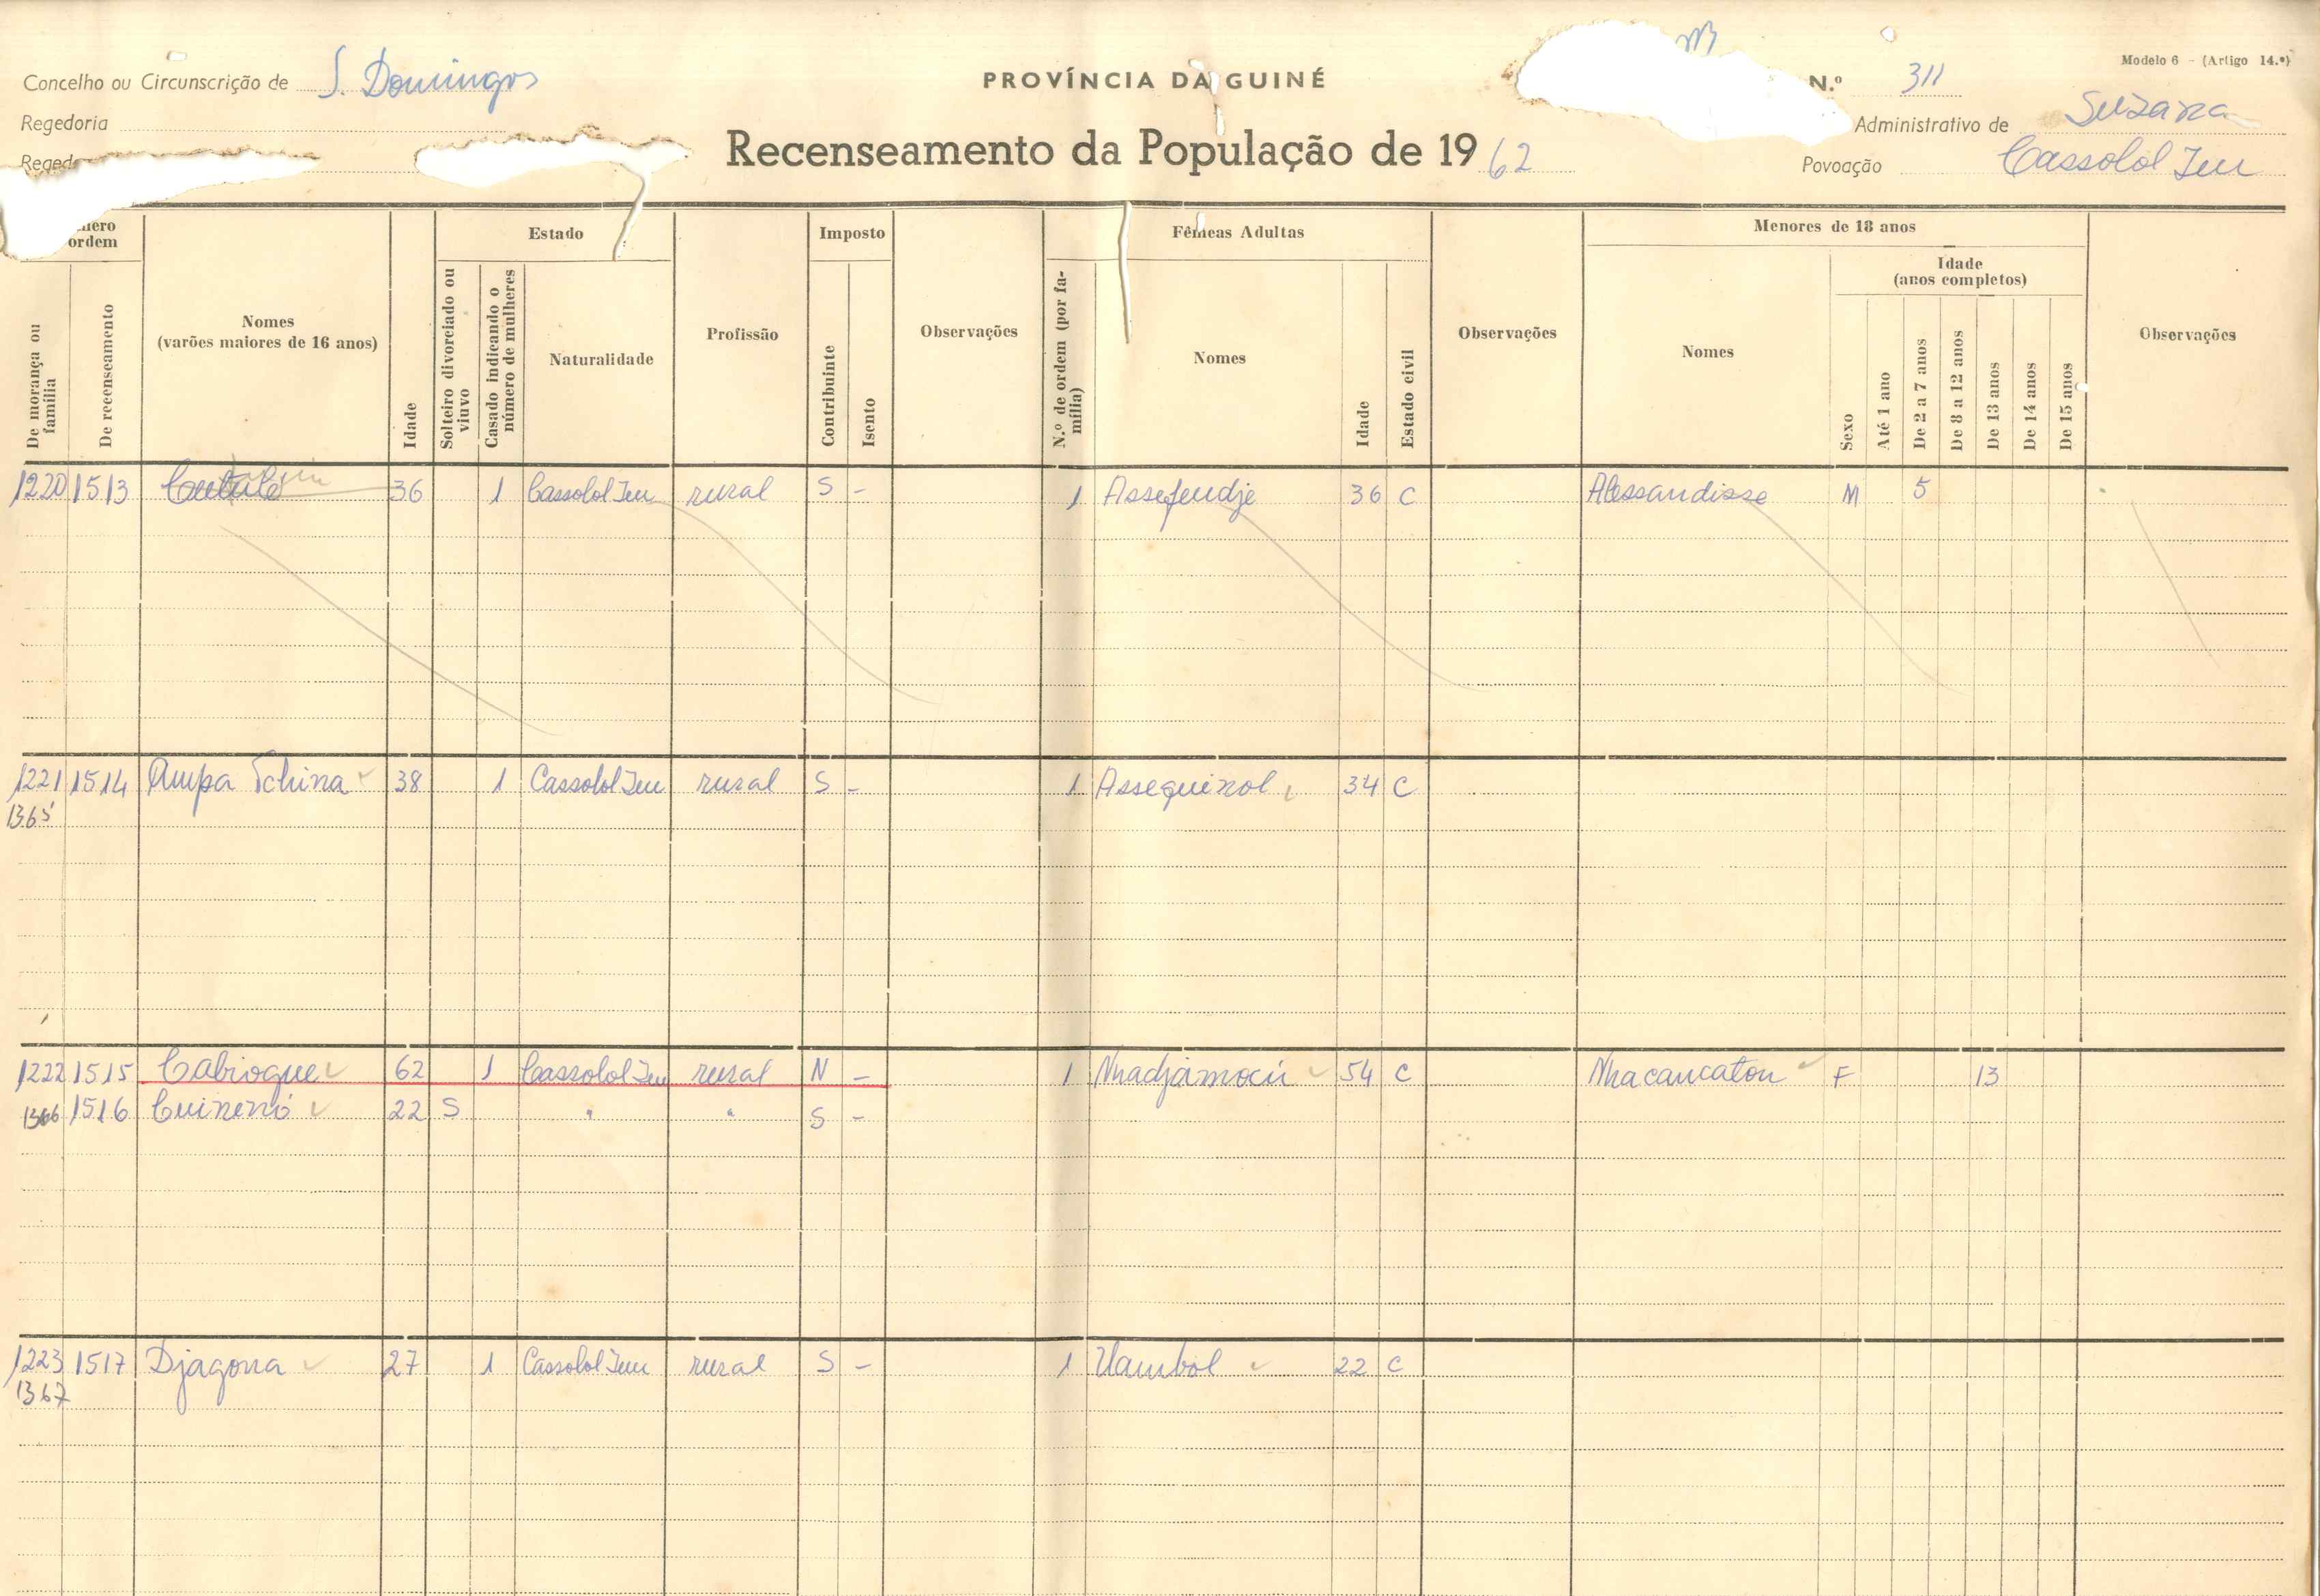 Modelo 6 - (Artigo 14.º)
Concelho ou Circunscrição de S. Domingos PROVÍNCIA DA GUINÉ N.º 311
Regedoria Administrativo de Suzana
Recenseamento da População de 1962 Povoação Cassolol Jeu
ordem Estado Imposto Fêmeas Adultas Menores de 18 anos
Idade
(anos completos)
De morança ou família
De recenseamento
Nomes
(varões maiores de 16 anos)
Idade
Solteiro divorciado ou viuvo
Casado indicando o número de mulheres
Naturalidade
Profissão
Contribuinte
Isento
Observações
N.º de ordem (por família)
Nomes
Idade
Estado civil
Observações
Nomes
Sexo
Até 1 ano
De 2 a 7 anos
De 8 a 12 anos
De 13 anos
De 14 anos
De 15 anos
Observações
1220 1513 36 1 Cassolol Jeu rural S - 1 Assefeudje 36 C Alessandisse M 5
1221 1514 Ampa Tchina 38 1 Cassolol Jeu rural S - 1 Assequinol 34 C
1365
1222 1515 Cabiogue 62 1 Cassolol Jeu rural N - 1 Nhadjamocú 54 C Nhacaucaton F 13
1366 1516 Cuinenó 22 S " " S -
1223 1517 Djagona 27 1 Cassolol Jeu rural S - 1 Uambol 22 C
1367